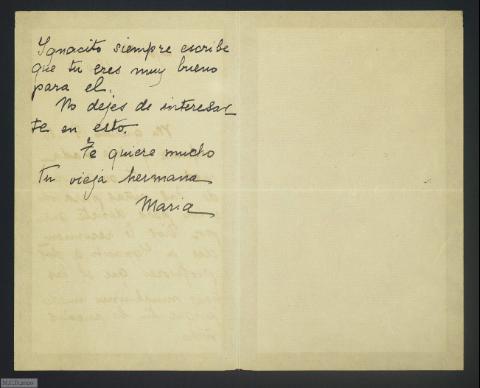 Ygnacito siempre escribe
que tu eres muy bueno
para el.
No dejes de interesar
te en esto.
Te quiere mucho
tu vieja hermana
Maria